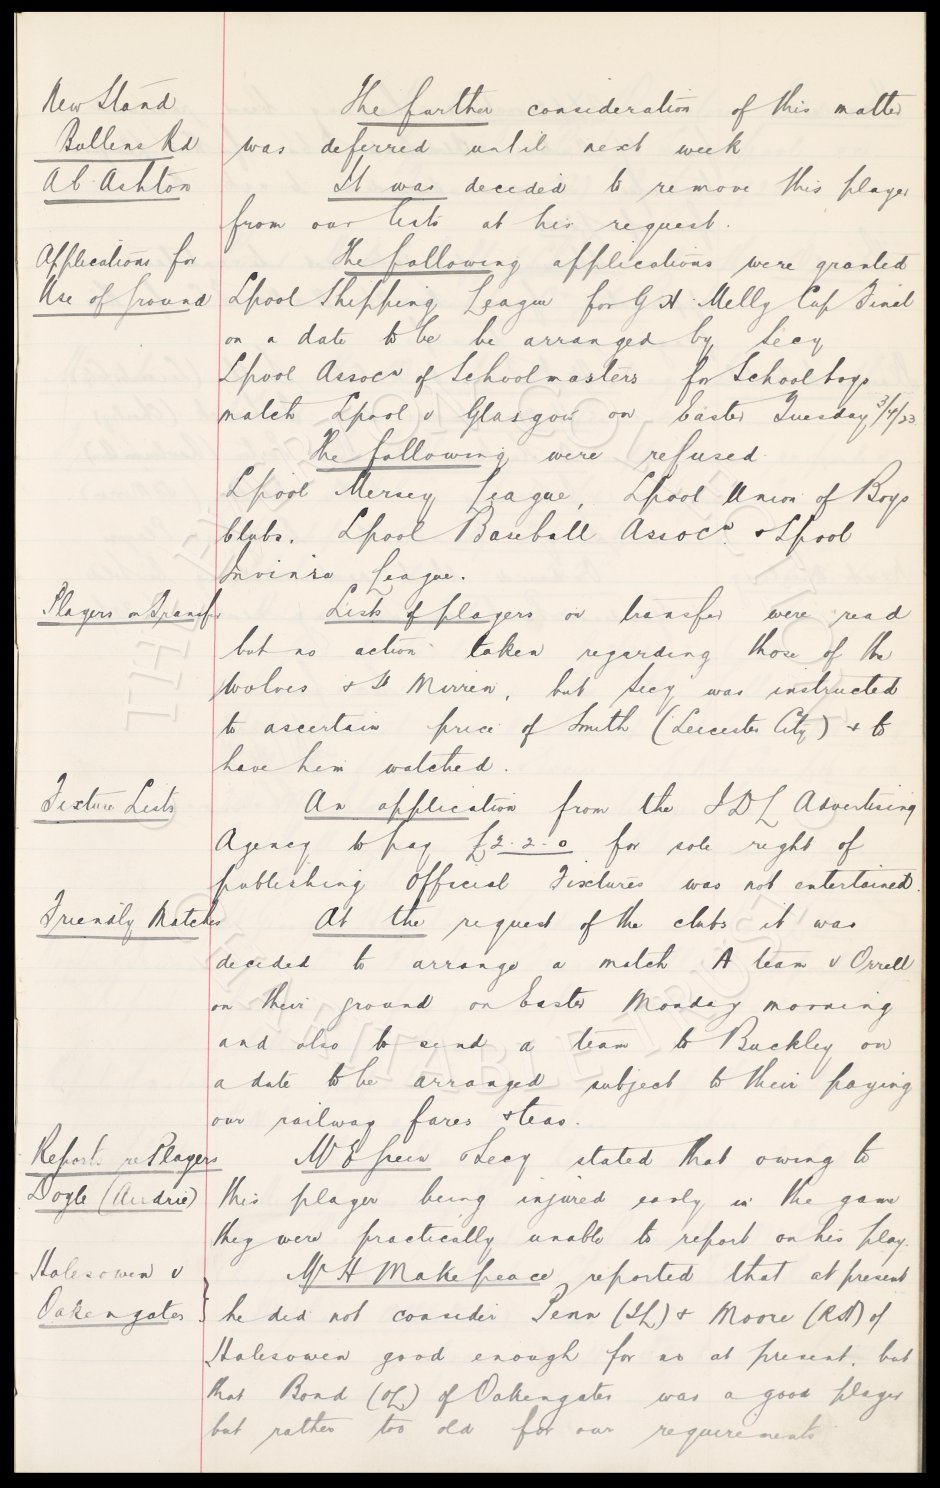 New Stand
Bullens Rd
The further consideration of this matter
was deferred until next week
Ab. Ashton
It was decided to remove this player
from our lists at his request.
Applications for
Use of Ground
The following applications were granted
Lpool Shipping League for G H Melly Cup Final
on a date to be be arranged by Secy
Lpool Assocn of Schoolmasters for Schoolboys
match Lpool v Glasgow on Easter Tuesday 3/4/23.
The following were refused
Lpool Mersey League, Lpool Union of Boys
Clubs. Lpool Baseball Assocn. & Lpool
League.
Players on Transfer
Lists of players on transfer were read
but no action taken regarding those of the
Wolves & St Mirren, but Secy was instructed
to ascertain price of Smith (Leicester City) & to
have him watched.
Fixture Lists
An application from the I D L Advertising
Agency to pay £2.2.0 for sole right of
publishing Official Fixtures was not entertained.
Friendly Matches
At the request of the clubs it was
decided to arrange a match A team v Orrell
on their ground on Easter Monday morning
and also to send a team to Buckley on
a date to be arranged subject to their paying
our railway fares & teas.
Reports re Players
Doyle (Airdrie)
Mr E Green & Secy stated that owing to
this player being injured early in the game
they were practically unable to report on his play.
Halesowen v
Oakengates
Mr H Makepeace reported that at present
he did not consider Penn (IL) & Moore (RH) of
Halesowen good enough for us at present, but
that Bond (OL) of Oakengates was a good player
but rather too old for our requirements